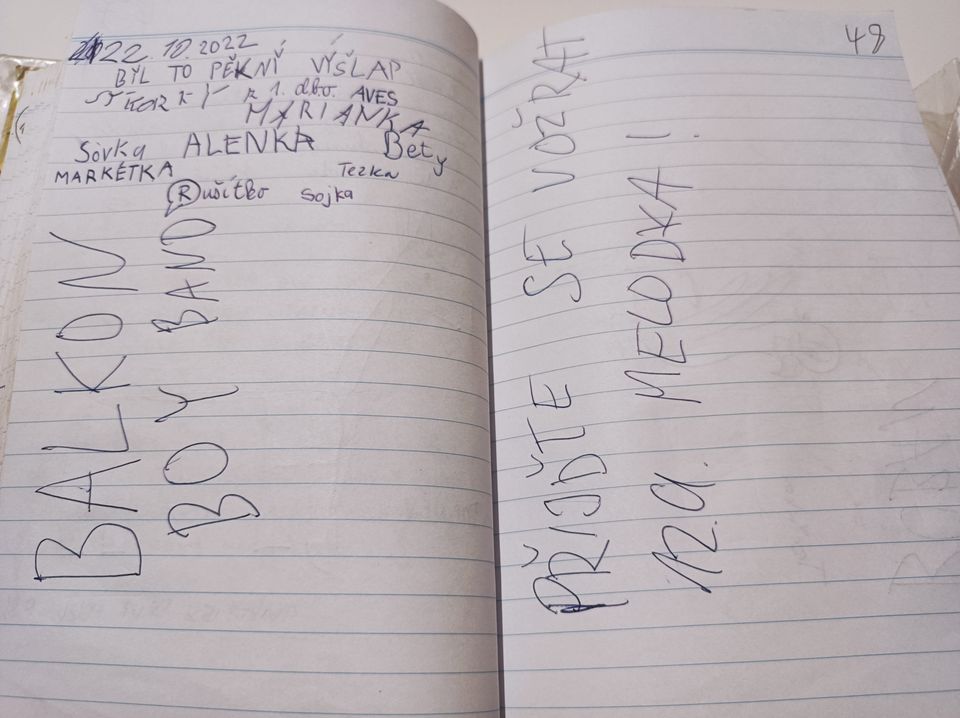 22.10.2022
BYL TO PĚKNÝ VÝŠLAP
SÝKORKY z 1. dbo. AVES
MARIANKA
Sovka ALENKA Bety
MARKÉTKA Terka
Rušítko Sojka
BALKON
BOY BAND
48
PŘIJĎTE SE VOŽRAT
MELODKA!